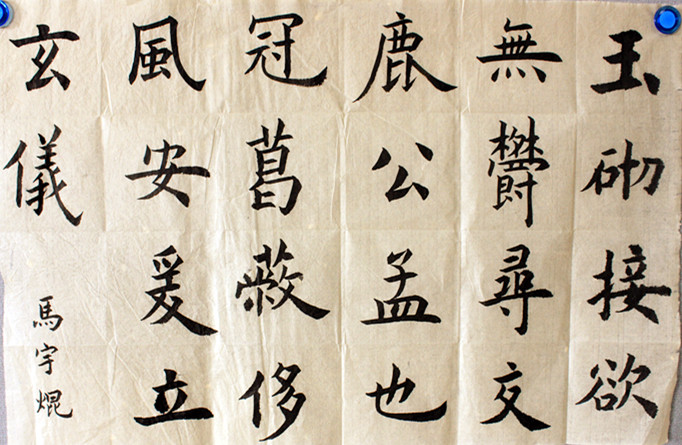 玉砌接欲
無欝尋交
鹿公孟也
冠葛蔽侈
風安爰立
玄儀
馬宇焜